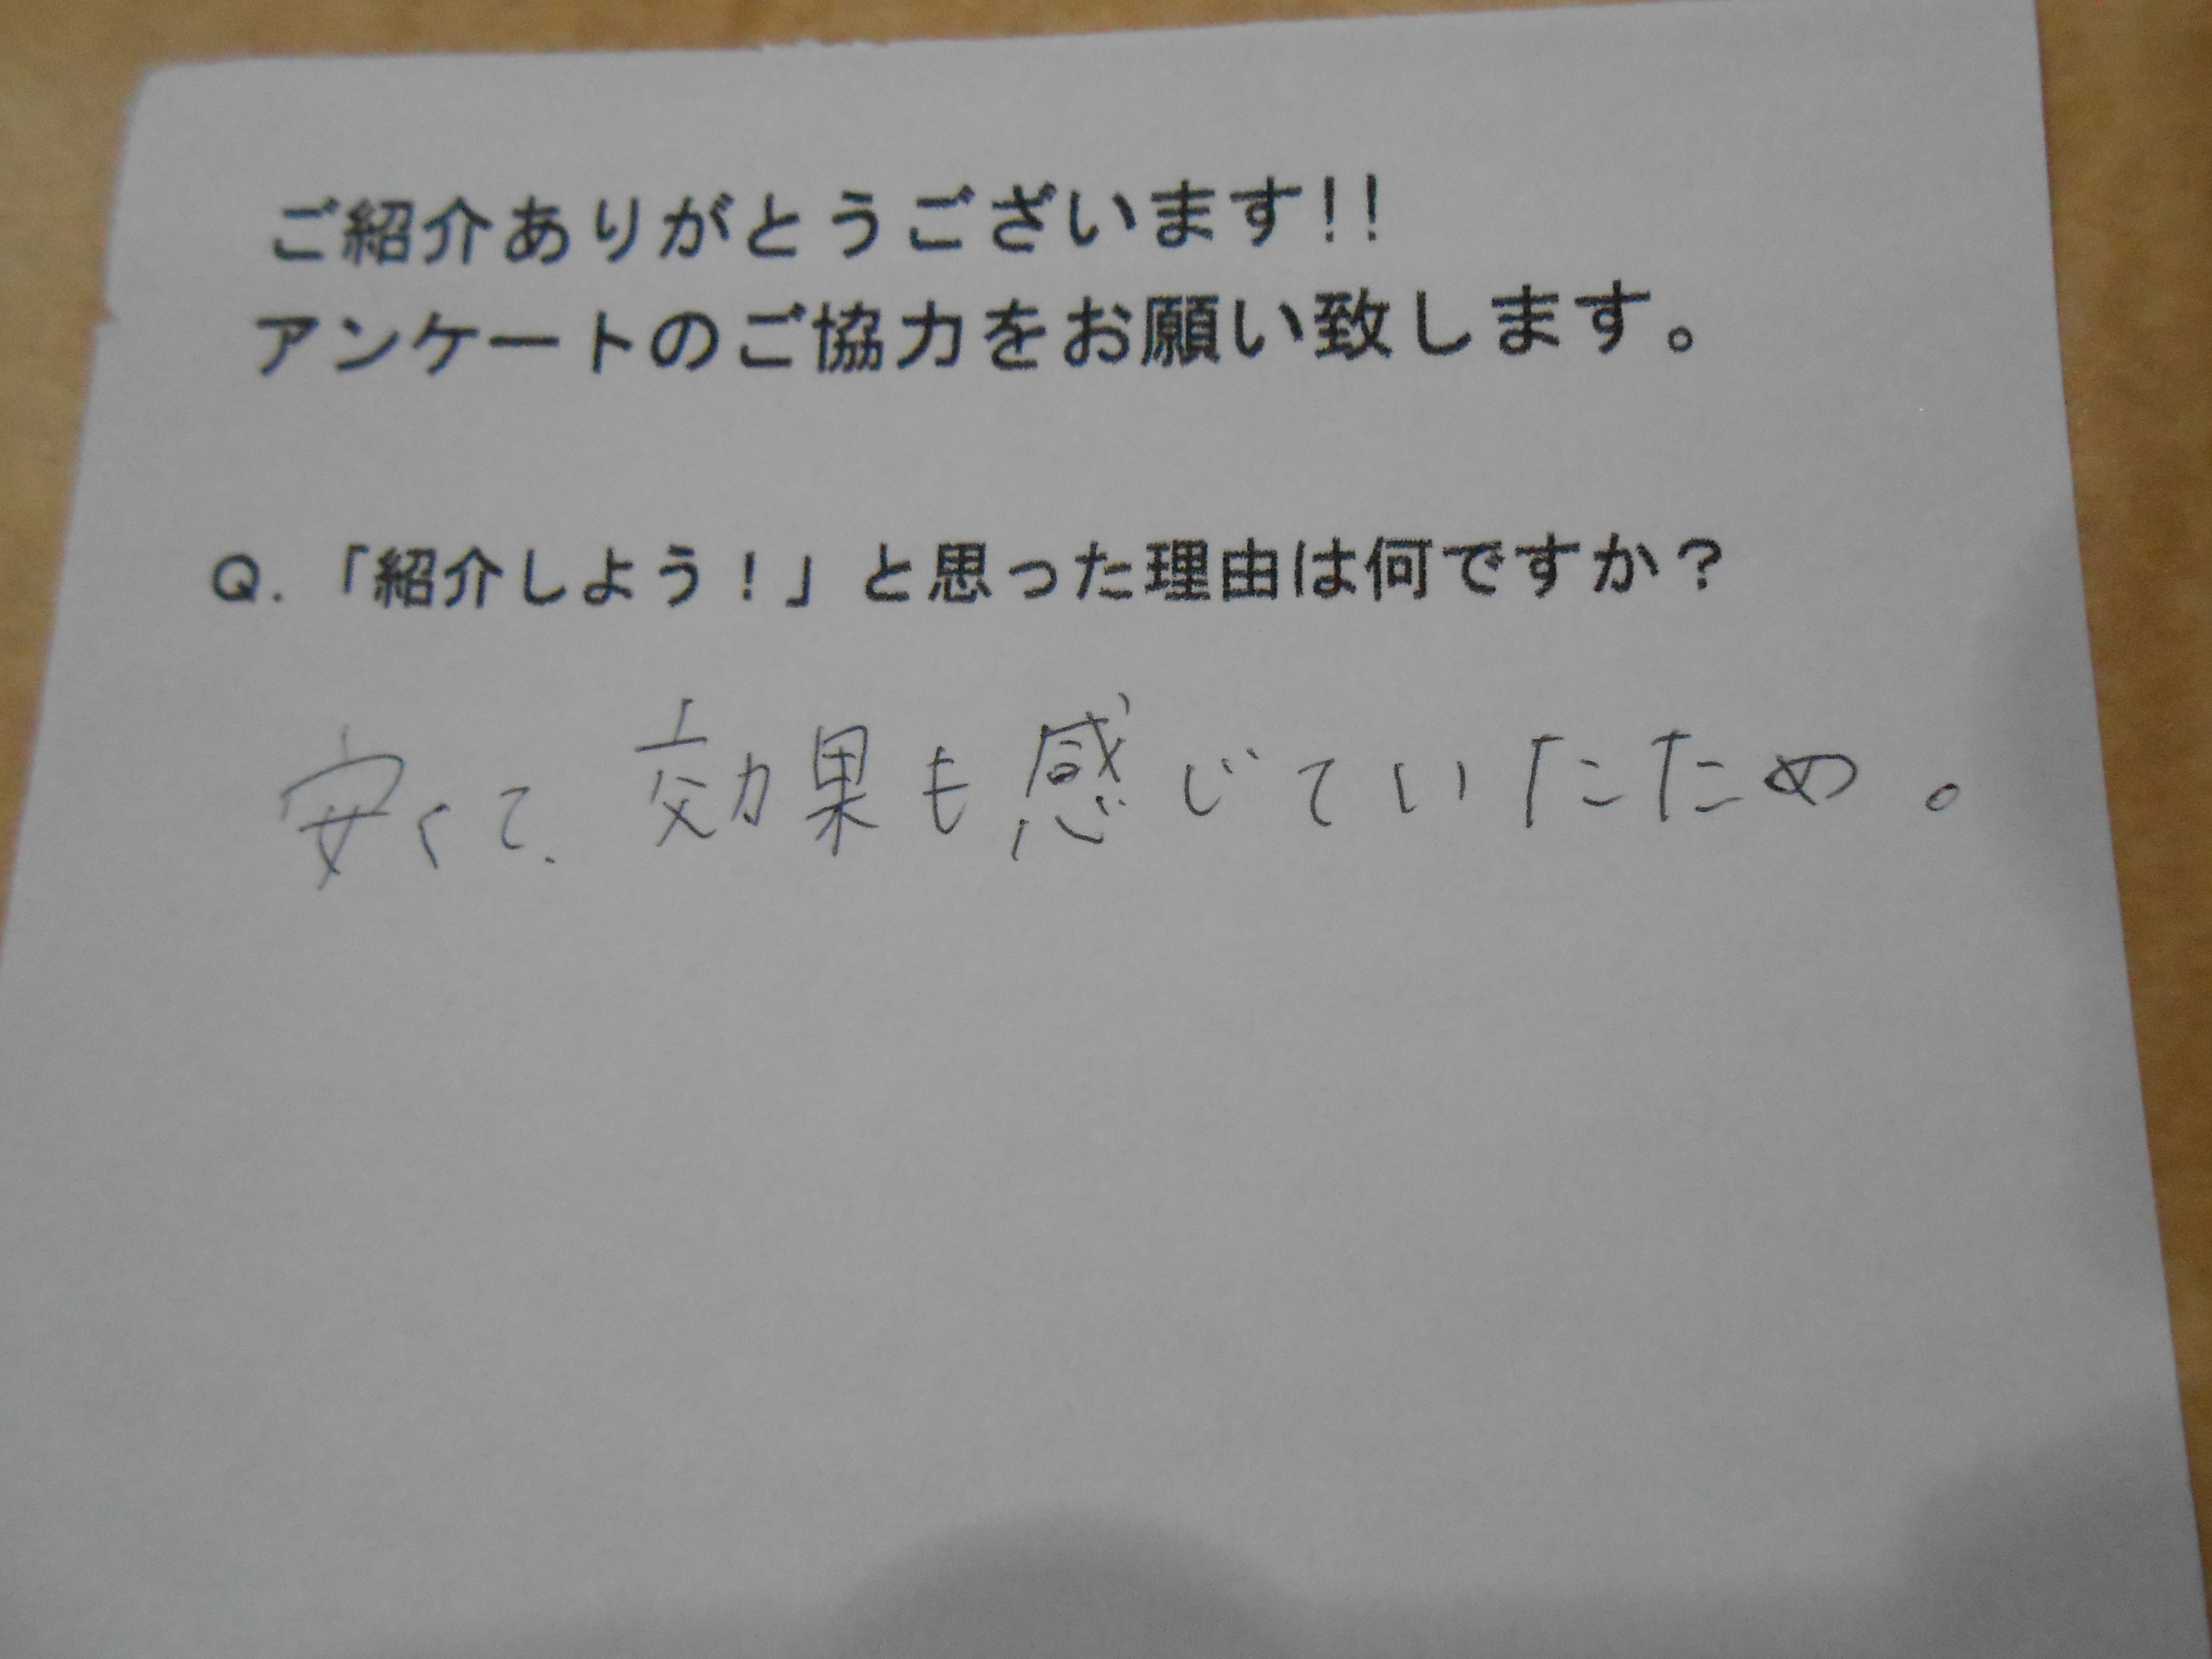 ご紹介ありがとうございます!!
アンケートのご協力をお願い致します。
Q.「紹介しよう!」と思った理由は何ですか?
安くて、効果も感じていたため。